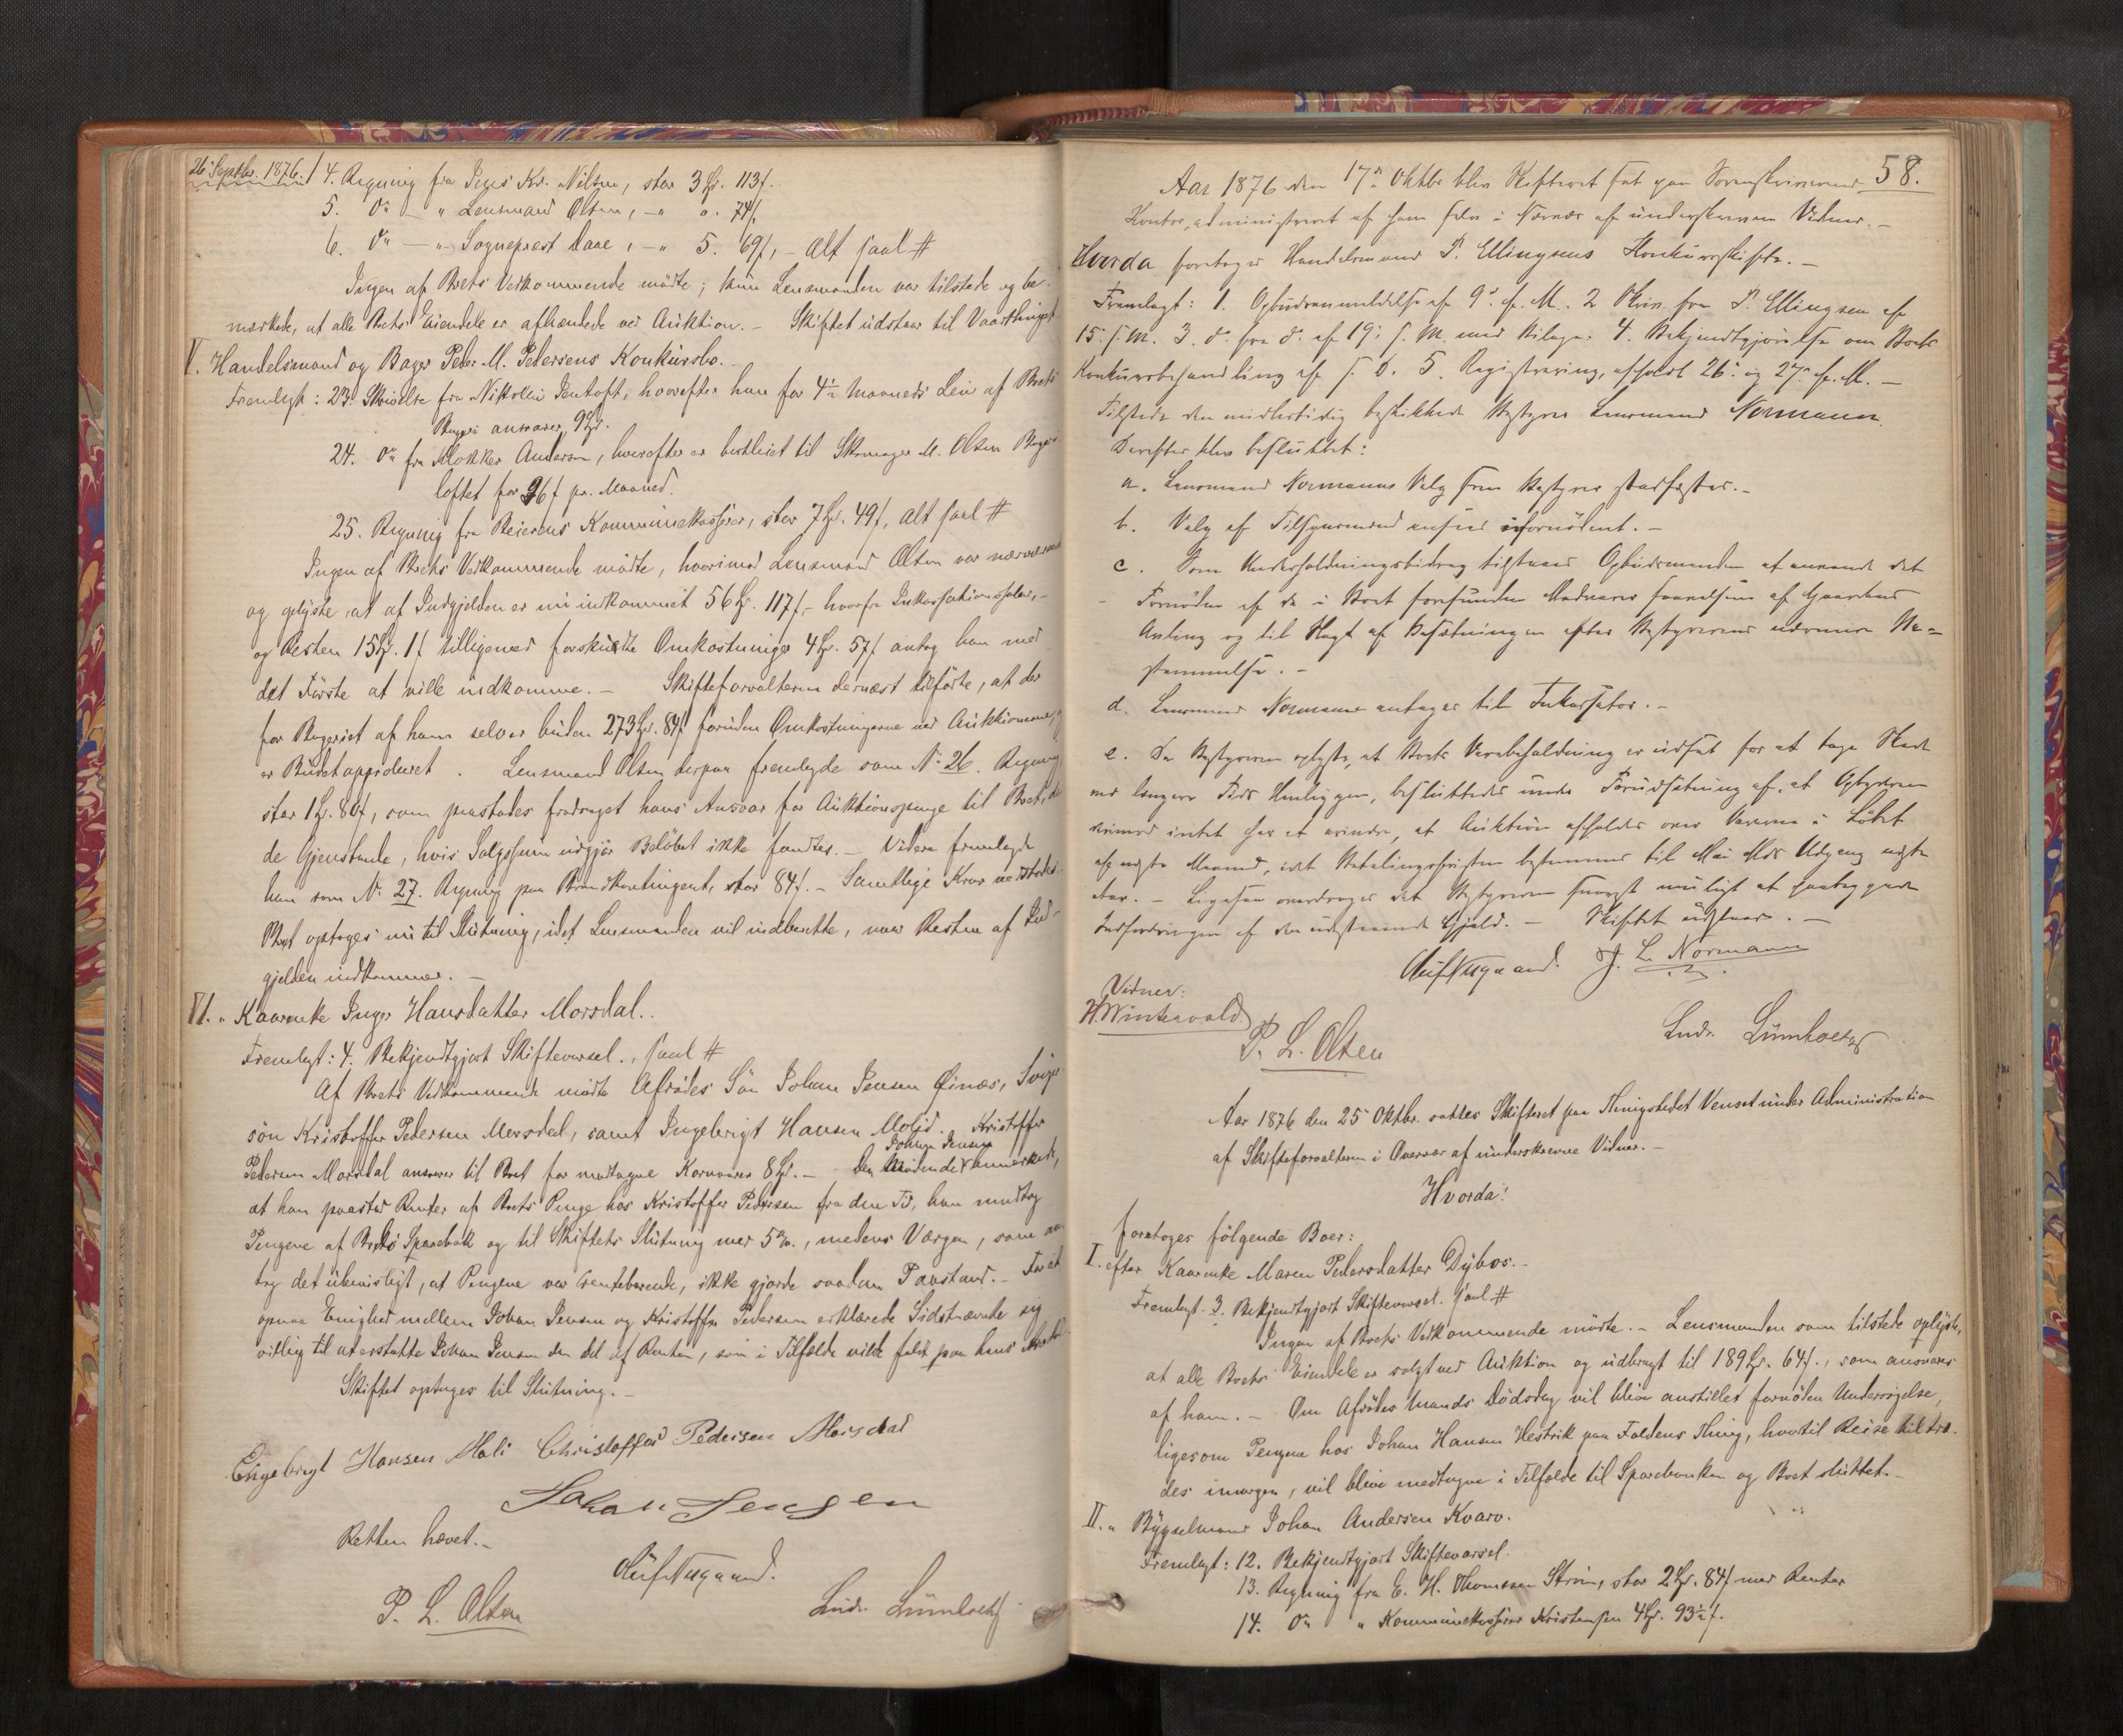 26 Septbr. 1876.
4. Regning fra Jens Kr. Nilsen, stor 3 Spd. 113 f.
5. Do — " Lensmand Olsen, – " o. 74 f,
6. Do — " Sogneprest Daae, – " 5. 69 f, – alt saal #
Ingen af Boets Vedkommende mödte; kun Lensmanden var tilstede og be-
mærkede, at alle Boets Eiendele er afhændede ved Auktion. – Skiftet udstaar til Vaarthinget
V. Handelsmand og Bager Peder M. Pedersens Konkursbo.
Fremlagt: 23. Skrivelse fra Nikolai Jentoft, hvorefter han for 4½ Maaneds Leie af Boets
Bryggeri ansvarer 9 Spd.
24. Do fra Klokker Andersen, hvorefter er bortleiet til Skomager M. Olsen Bager-
loftet for 96 f pr. Maaned.
25. Regning fra Beierens Kommunekasserer, stor 7 Spd. 49 f, alt saal #
Ingen af Boets Vedkommende mödte, hvorimod Lensmand Olsen var nærværende
og oplyste at af Indgjelden er nu indkommet 56 Spd. 117 f, – hvorfra Inkassationssalær, –
og Resten 15 Spd. 1 f tilligemed forskudte Omkostninger 4 Spd. 57 f antog han med
det Förste at ville indkomme. – Skifteforvalteren dernæst tilförte, at der
for Bageriet af ham selv er buden 273 Spd. 84 f foruden Omkostningerne ved Auktionerne,
er Budet approberet. Lensmand Olsen derpaa fremlagde som No 26. Regning
stor 1 Spd. 80 f, som paastodes fradraget hans Ansvar for Auktionspenge til Boet, da
de Gjenstande, hvis Salgssum udgjör Belöbet ikke fandtes. – Videre fremlagde
han som No 27. Regning paa Brandkontingent, stor 84 f. – Samtlige Krav vedtoges
Boet optoges nu til Slutning, idet Lensmanden vil indberette, naar Resten af Ind-
gjelden indkommer. –
VI. " Kaarenke Inger Hansdatter Morsdal.
Fremlagt: 4. Bekjendtgjort Skiftevarsel., saal #
Af Boets Vedkommende mödte Afdödes Sön Johan Jensen Öinæs, Sviger-
sön Kristoffer Pedersen Morsdal, samt Ingebrigt Hansen Molid. Kristoffer
Pedersen Morsdal ansvarer til Boet for modtagne Kornvarer 8 Spd. – Den Mödende Johan Jensen bemærkede,
at han paastod Renter af Boets Penge hos Kristoffer Pedersen fra den Tid, han modtog
Pengene af Boets Sparebok og til Skiftets Slutning med 5 %., medens Værgen, som an-
tog det ubevisligt, at Pengene var rentebærende, ikke gjorde saadan Paastand. – For at
opnaa Enighed mellem Johan Jensen og Kristoffer Pedersen erklærede Sidstnævnte sig
villig til at erstatte Johan Jensen den del af Renten, som i Tilfælde vilde faldt paa hans
Skiftet optoges til Slutning. –
Engebrigt Hansen Moli Christoffer Pedersen Morsdal
Johan Jensen
Retten hævet. –
P. L. Olsen
58.
Aar 1876 den 17de Oktbr blev Skifteret sat paa Sorenskriverens
Kontor, administreret af ham selv i Nærvær af underskrevne Vidner. –
Hvorda foretoges Handelsmand P. Ellingsens Konkursskifte. –
Fremlagt: 1. Opbudsanmeldelse af 9de f. M. 2 Skriv. fra P. Ellingsen af
15. s. M. 3. do fra do af 19. s. M. med Bilage. 4. Bekjendtgjörelse om Boets
Konkursbehandling af s. D. 5. Registrering, afholdt 26. og 27. f. M. –
Tilstede den midlertidig beskikkede Bestyrer Lensmand Normann.
Derefter blev besluttet:
a. Lensmand Normanns Valg som Bestyrer stadfæstes. –
b. Valg af Tilsynsmænd ansees ufornödent. –
c. Som Underholdningsbidrag tilstaaes Opbudsmanden at anvende det
Fornödne af de i Boet forefundne Madvarer foruden af Gaardens
Avling og til Slagt af Besætningen efter Bestyrerens nærmere Be-
stemmelse. –
d. Lensmand Normann antages til Inkassator. –
e. Da Bestyreren oplyste, at Boets Varebeholdning er udsat for at tage Skade
ved længere Tids Henliggen, besluttedes under Forudsætning af, at Opbyderen
derimod intet har at erindre, at Auktion afholdes over Varerne i Löbet
af næste Maaned, idet Betalingsfristen bestemmes til Mai Mds Udgang næste
Aar. – Ligesaa overdrages det Bestyreren snarest muligt at paabegynde
Indfordringen af den udestaaende Gjæld. – Skiftet udstaar. –
J. L. Normann
Vidner:
H Wintervold
P. L. Olsen
Aar 1876 den 25de Oktbr. sattes Skifteret paa Thingstedet Venset under Administration
af Skifteforvalteren i Overvær af underskrevne Vidner. –
Hvorda!
foretoges fölgende Boer:
I. efter Kaarenke Maren Pedersdatter Dybos. –
Fremlagt. 3. Bekjendtgjort Skiftevarsel. saal #
Ingen af Boets Vedkommende mödte. – Lensmanden som tilstede oplyste,
at alle Boets Eiendele er solgt ved Auktion og udbragt til 189 Spd. 64 f., som ansvares
af ham. – Om Afdödes Mands Dödsdag vil blive anstillet fornöden Undersögelse,
ligesom Pengene hos Johan Hansen Hestvik paa Foldens Thing, hvortil Reise tiltræ-
des imorgen, vil blive medtagne i Tilfælde til Sparebanken og Boet sluttet. –
II. " Bygselmand Johan Andersen Kvarv.
Fremlagt: 12. Bekjendtgjort Skiftevarsel.
13. Regning fra E. H. Thomesen Ström, stor 2 Spd. 84 f med Renter
14. Do " Kommunekasserer Kristensen 4 Spd. 93½ f.